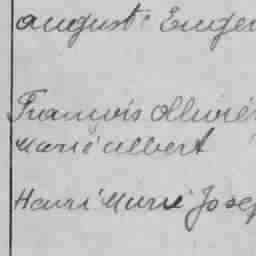 august Eugen
François Ollivier
Marie Albert
Henri Marie Josep